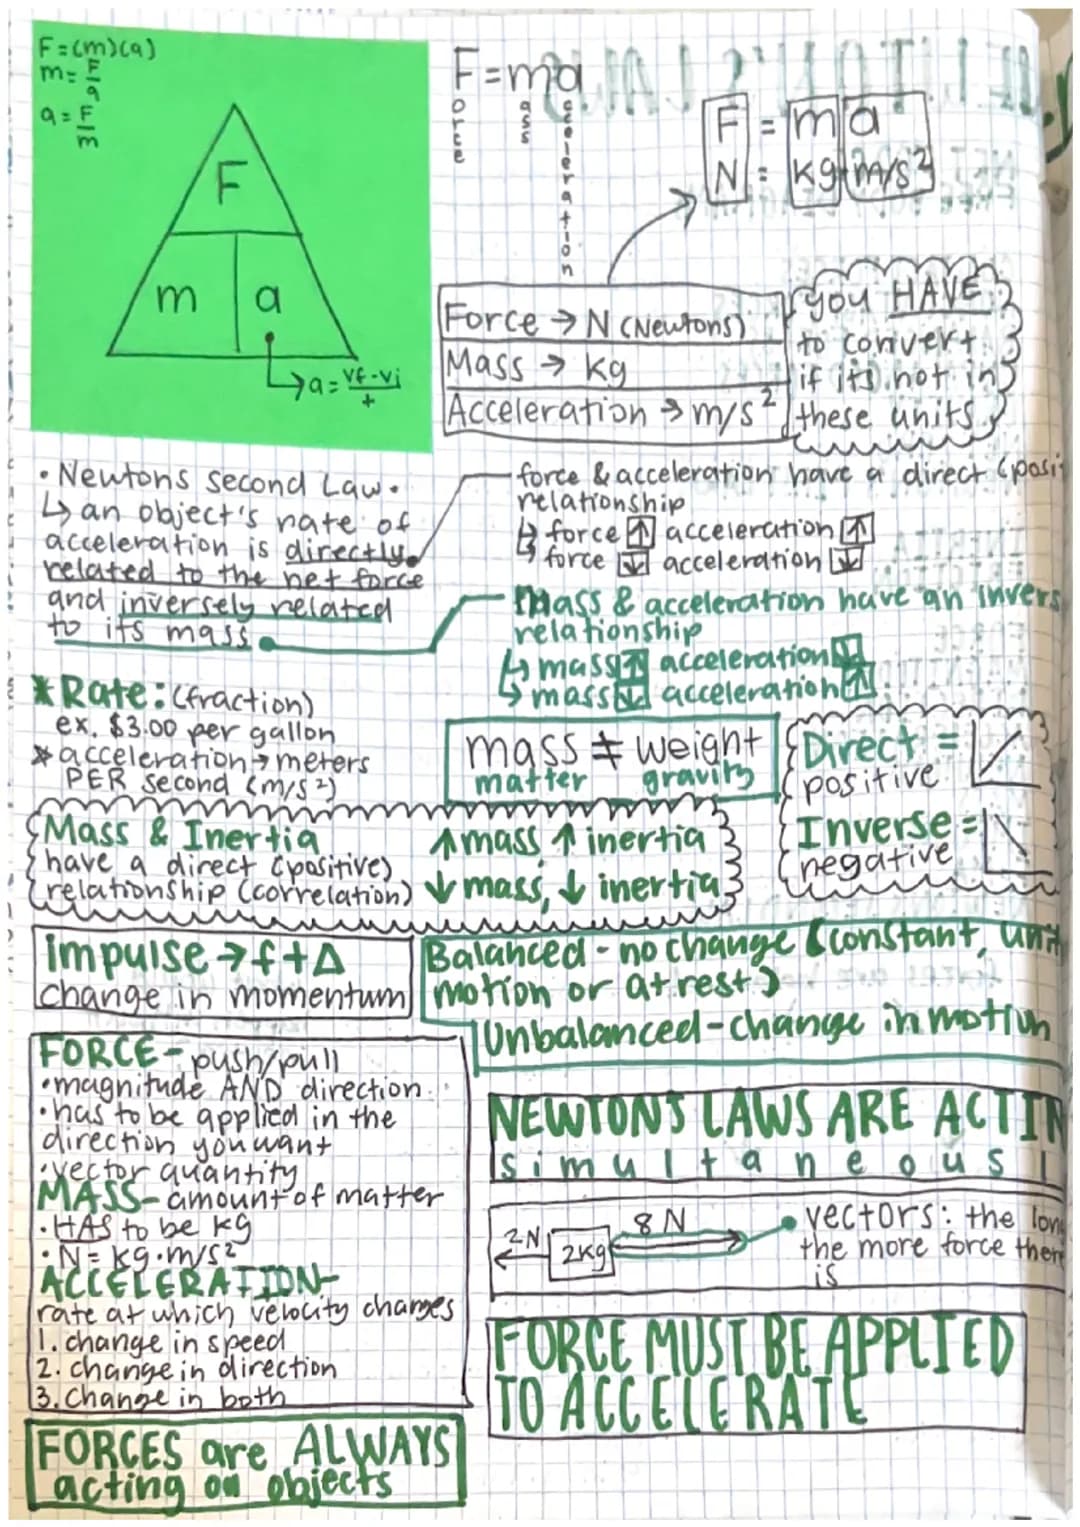 F=(m)(a)
m=F/a
a=F/m
F
m a
a=vf-vi/t
F=ma
orce
ass
cceleration
F = m a
N = kg m/s²
Force → N (Newtons)
Mass → kg
Acceleration → m/s²
you HAVE
to convert
if its not in
these units
• Newtons Second Law •
↳ an object's rate of
acceleration is directly
related to the net force
and inversely related
to its mass
force & acceleration have a direct (posit
relationship
↳ force ↑ acceleration ↑
↳ force ↓ acceleration ↓
Mass & acceleration have an invers
relationship
↳ mass ↑ acceleration ↓
↳ mass ↓ acceleration ↑
*Rate: (fraction)
ex. $3.00 per gallon
* acceleration → meters
PER second (m/s²)
mass ≠ weight
matter gravity
Direct =
positive
Inverse =
negative
Mass & Inertia
have a direct (positive)
relationship (correlation)
↑ mass ↑ inertia
↓ mass, ↓ inertia
impulse → f+Δ
change in momentum
Balanced - no change (constant, unif
motion or at rest)
Unbalanced - change in motion
FORCE - push/pull
• magnitude AND direction
• has to be applied in the
direction you want
• vector quantity
MASS - amount of matter
• HAS to be kg
• N = kg·m/s²
ACCELERATION -
rate at which velocity changes
1. change in speed
2. change in direction
3. Change in both
FORCES are ALWAYS
acting on objects
NEWTONS LAWS ARE ACTIN
simultaneousl
2N 2kg 8 N
• vectors: the lon
the more force there
is
FORCE MUST BE APPLIED
TO ACCELERATE